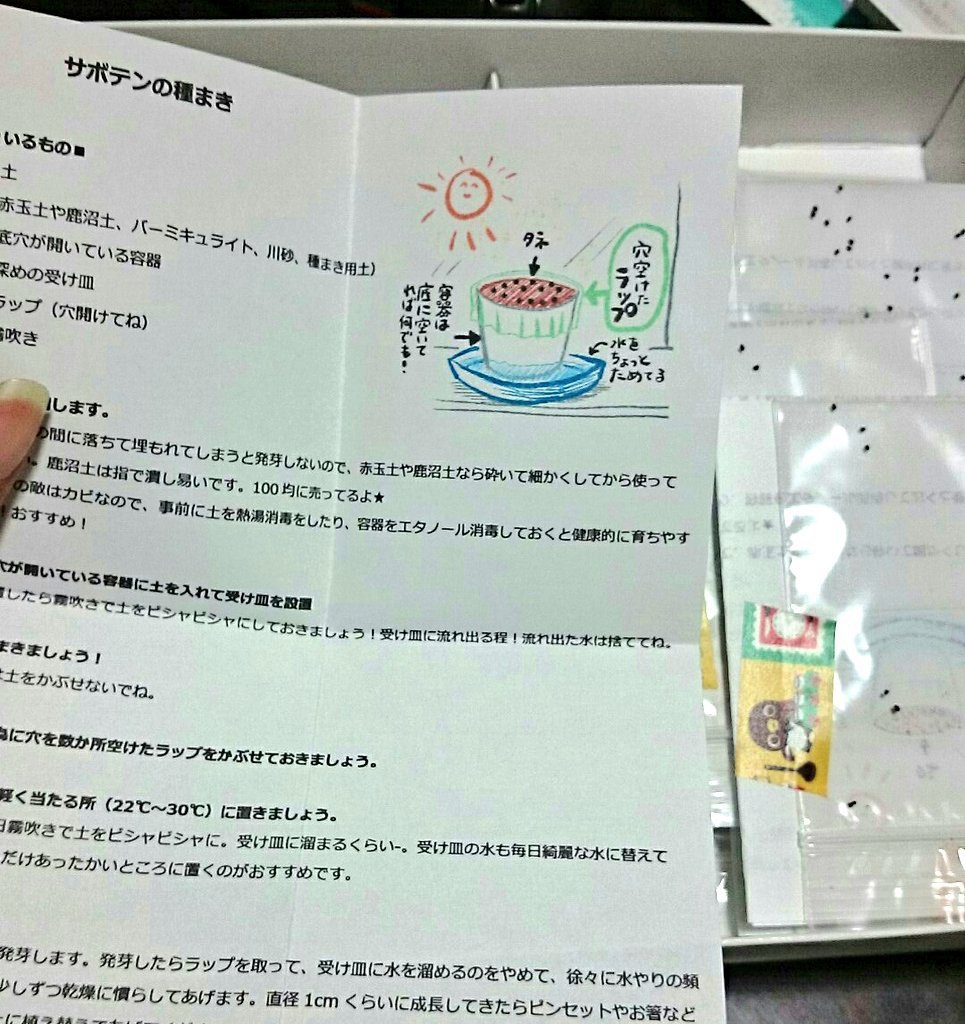 サボテンの種まき
いるもの■
土
赤玉土や鹿沼土、バーミキュライト、川砂、種まき用土）
底穴が開いている容器
深めの受け皿
ラップ（穴開けてね）
霧吹き
タネ
穴空けた
ラップ
容器は
底に空いて
れば何でも！
水を
ちょっと
ためてる
します。
の間に落ちて埋もれてしまうと発芽しないので、赤玉土や鹿沼土なら砕いて細かくしてから使って
。鹿沼土は指で潰し易いです。100均に売ってるよ★
の敵はカビなので、事前に土を熱湯消毒をしたり、容器をエタノール消毒しておくと健康的に育ちやす
おすすめ！
穴が開いている容器に土を入れて受け皿を設置
したら霧吹きで土をビシャビシャにしておきましょう！受け皿に流れ出る程！流れ出た水は捨ててね。
まきましょう！
土をかぶせないでね。
為に穴を数か所空けたラップをかぶせておきましょう。
軽く当たる所（22℃～30℃）に置きましょう。
日霧吹きで土をビシャビシャに。受け皿に溜まるくらい-。受け皿の水も毎日綺麗な水に替えて
だけあったかいところに置くのがおすすめです。
発芽します。発芽したらラップを取って、受け皿に水を溜めるのをやめて、徐々に水やりの頻
少しずつ乾燥に慣らしてあげます。直径1cmくらいに成長してきたらピンセットやお箸など